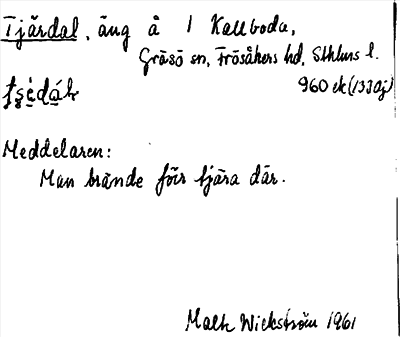 Tjärdal, äng å 1 Kallboda,
Gräsö sn, Frösåkers hd, Sthlms l.
960 ek (13J0j)
Meddelaren:
Man brände förr tjära där.
Malk Wickström 1961